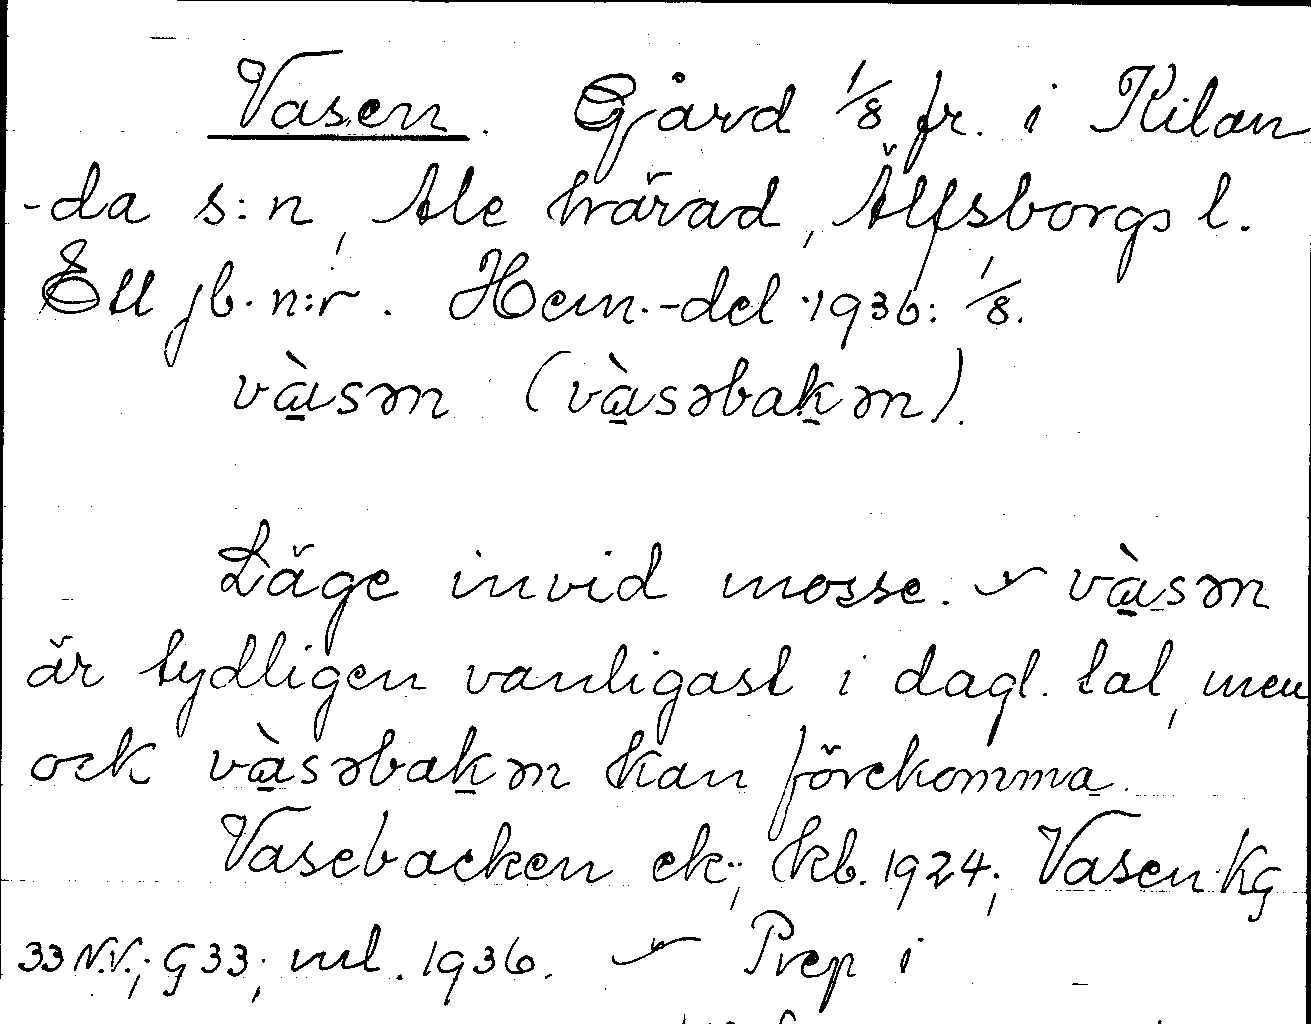 Vasen. Gård 1/8 fr. i Kilan
-da s:n, Ale härad, Älfsborgs l.
Ett jb. n:r. Hem.-del 1936: 1/8.
và̱sən (và̱səbaḵən).
Läge invid mosse. ~ và̱sən
är tydligen vanligast i dagl. tal, men
ock và̱səbaḵən kan förekomma.
Vasebacken ek.; kb. 1924; Vasen KG
33 N.V.; G 33; ml. 1936. ~ Prep i